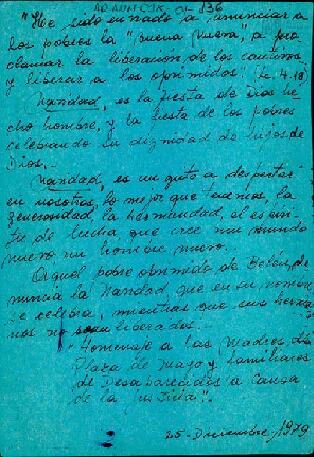 AR.ADM CJK-01-136
"He sido enviado a anunciar a
los pobres la "buena nueva", a pro
clamar la liberación de los cautivos
y liberar a los oprimidos" (Lc. 4.18)
Navidad, es la fiesta de Dios he
cho hombre, y la fiesta de los pobres
celebrando su dignidad de hijos de
Dios.-
Navidad, es un grito a despertar
en nosotros, lo mejor que tenemos, la
generosidad, la hermandad, el espíri
tu de lucha que cree un mundo
nuevo un hombre nuevo.-
Aquel pobre oprimido de Belén, de
nuncia la Navidad, que en su nombre
se celebra, mientras que sus herma
nos no sean liberados.-
"Homenaje a las Madres de
Plaza de Mayo y familiares
de Desaparecidos a Causa
de la Justicia".
25-Diciembre-1979